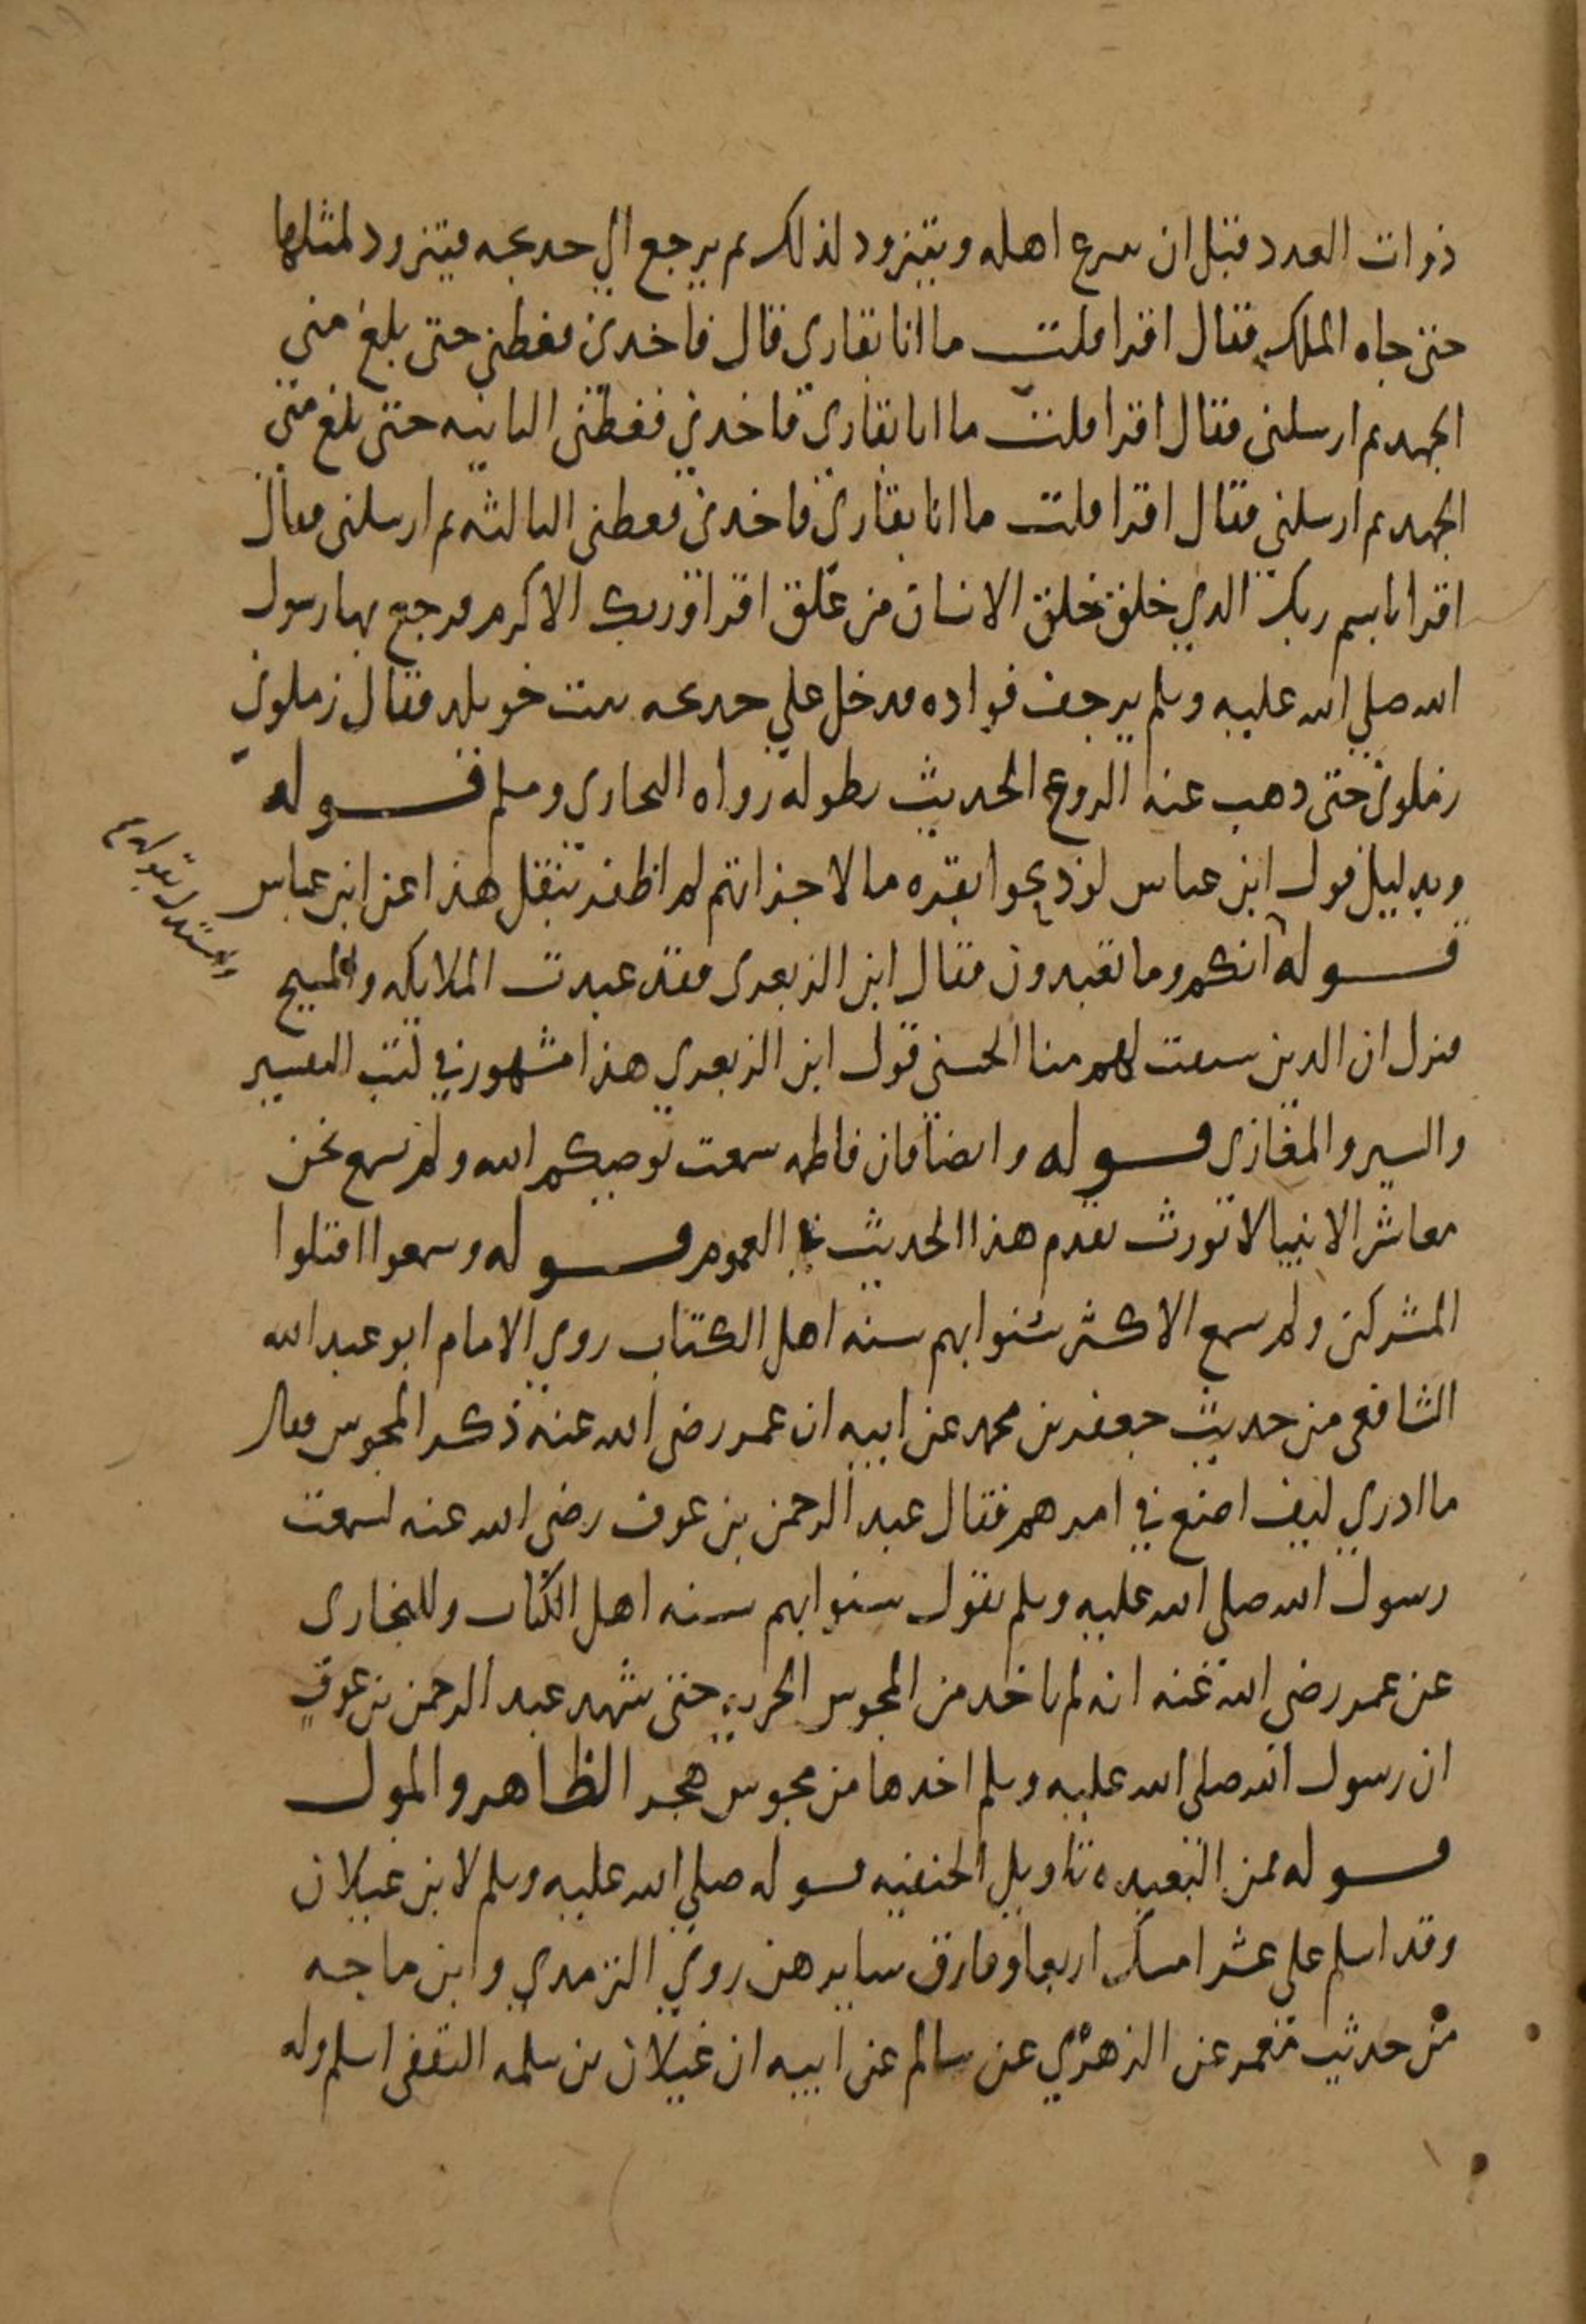 ذوات العدد قبل ان ينزع اهله ويتزود لذلك ثم يرجع الي خديجه فيتزود لمثلها
حتى جاه الملك فقال اقرا قلت ما انا بقاري قال فاخذني فغطني حتى بلغ مني
الجهد ثم ارسلني فقال اقرا قلت ما انا بقاري فاخذني فغطني الثانيه حتى بلغ مني
الجهد ثم ارسلني فقال اقرا قلت ما انا بقاري فاخذني فغطني الثالثه ثم ارسلني فقال
اقرا باسم ربك الذي خلق خلق الانسان من علق اقرا وربك الاكرم فرجع بها رسول
الله صلي الله عليه وسلم يرجف فواده فدخل علي خديجه بنت خويلد فقال زملوني
زملوني حتى ذهب عنه الروع الحديث بطوله رواه البخاري ومسلم قوله
وبدليل قول ابن عباس لو ذبحوا بقره ما لاجزاتهم لم اظفر بنقل هذا عن ابن عباس
قوله انكم وما تعبدون فقال ابن الزبعري فقد عبدت الملايكه والمسيح
فنزل ان الذين سبقت لهم منا الحسنى قول ابن الزبعري هذا مشهور في كتب التفسير
والسير والمغازي قوله وايضا فان فاطمه سمعت يوصيكم الله ولم تسمع نحن
معاشر الانبيا لا نورث تقدم هذا الحديث في العموم قوله وسمعوا اقتلوا
المشركين ولم يسمع الاكثر سنوا بهم سنه اهل الكتاب روي الامام ابو عبد الله
الشافعي من حديث جعفر بن محمد عن ابيه ان عمر رضي الله عنه ذكر المجوس فقال
ما ادري كيف اصنع في امرهم فقال عبد الرحمن بن عوف رضي الله عنه لسمعت
رسول الله صلي الله عليه وسلم يقول سنوا بهم سنه اهل الكتاب وللبخاري
عن عمر رضي الله عنه انه لم ياخذ من المجوس الجزيه حتى شهد عبد الرحمن بن عوف
ان رسول الله صلي الله عليه وسلم اخذها من مجوس هجر الظاهر والمول
قوله فمن البعيده تاويل الحنفيه قوله صلي الله عليه وسلم لابن غيلان
وقد اسلم علي عشر امسك اربعا وفارق سايرهن روي الترمذي وابن ماجه
من حديث معمر عن الزهري عن سالم عن ابيه ان غيلان بن سلمه الثقفي اسلم وله